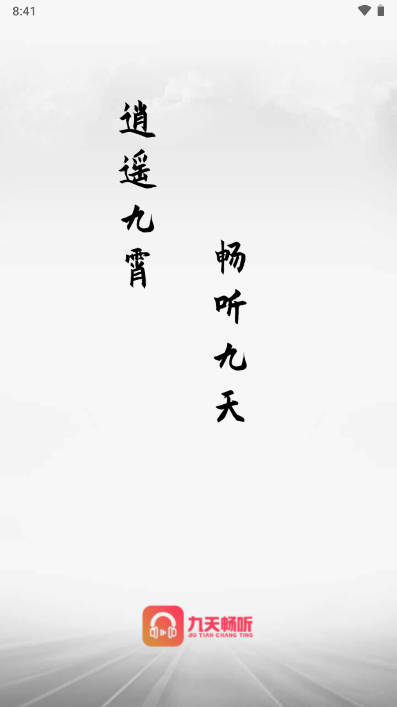 8:41
逍遥九霄
畅听九天
九天畅听
JIU TIAN CHANG TING